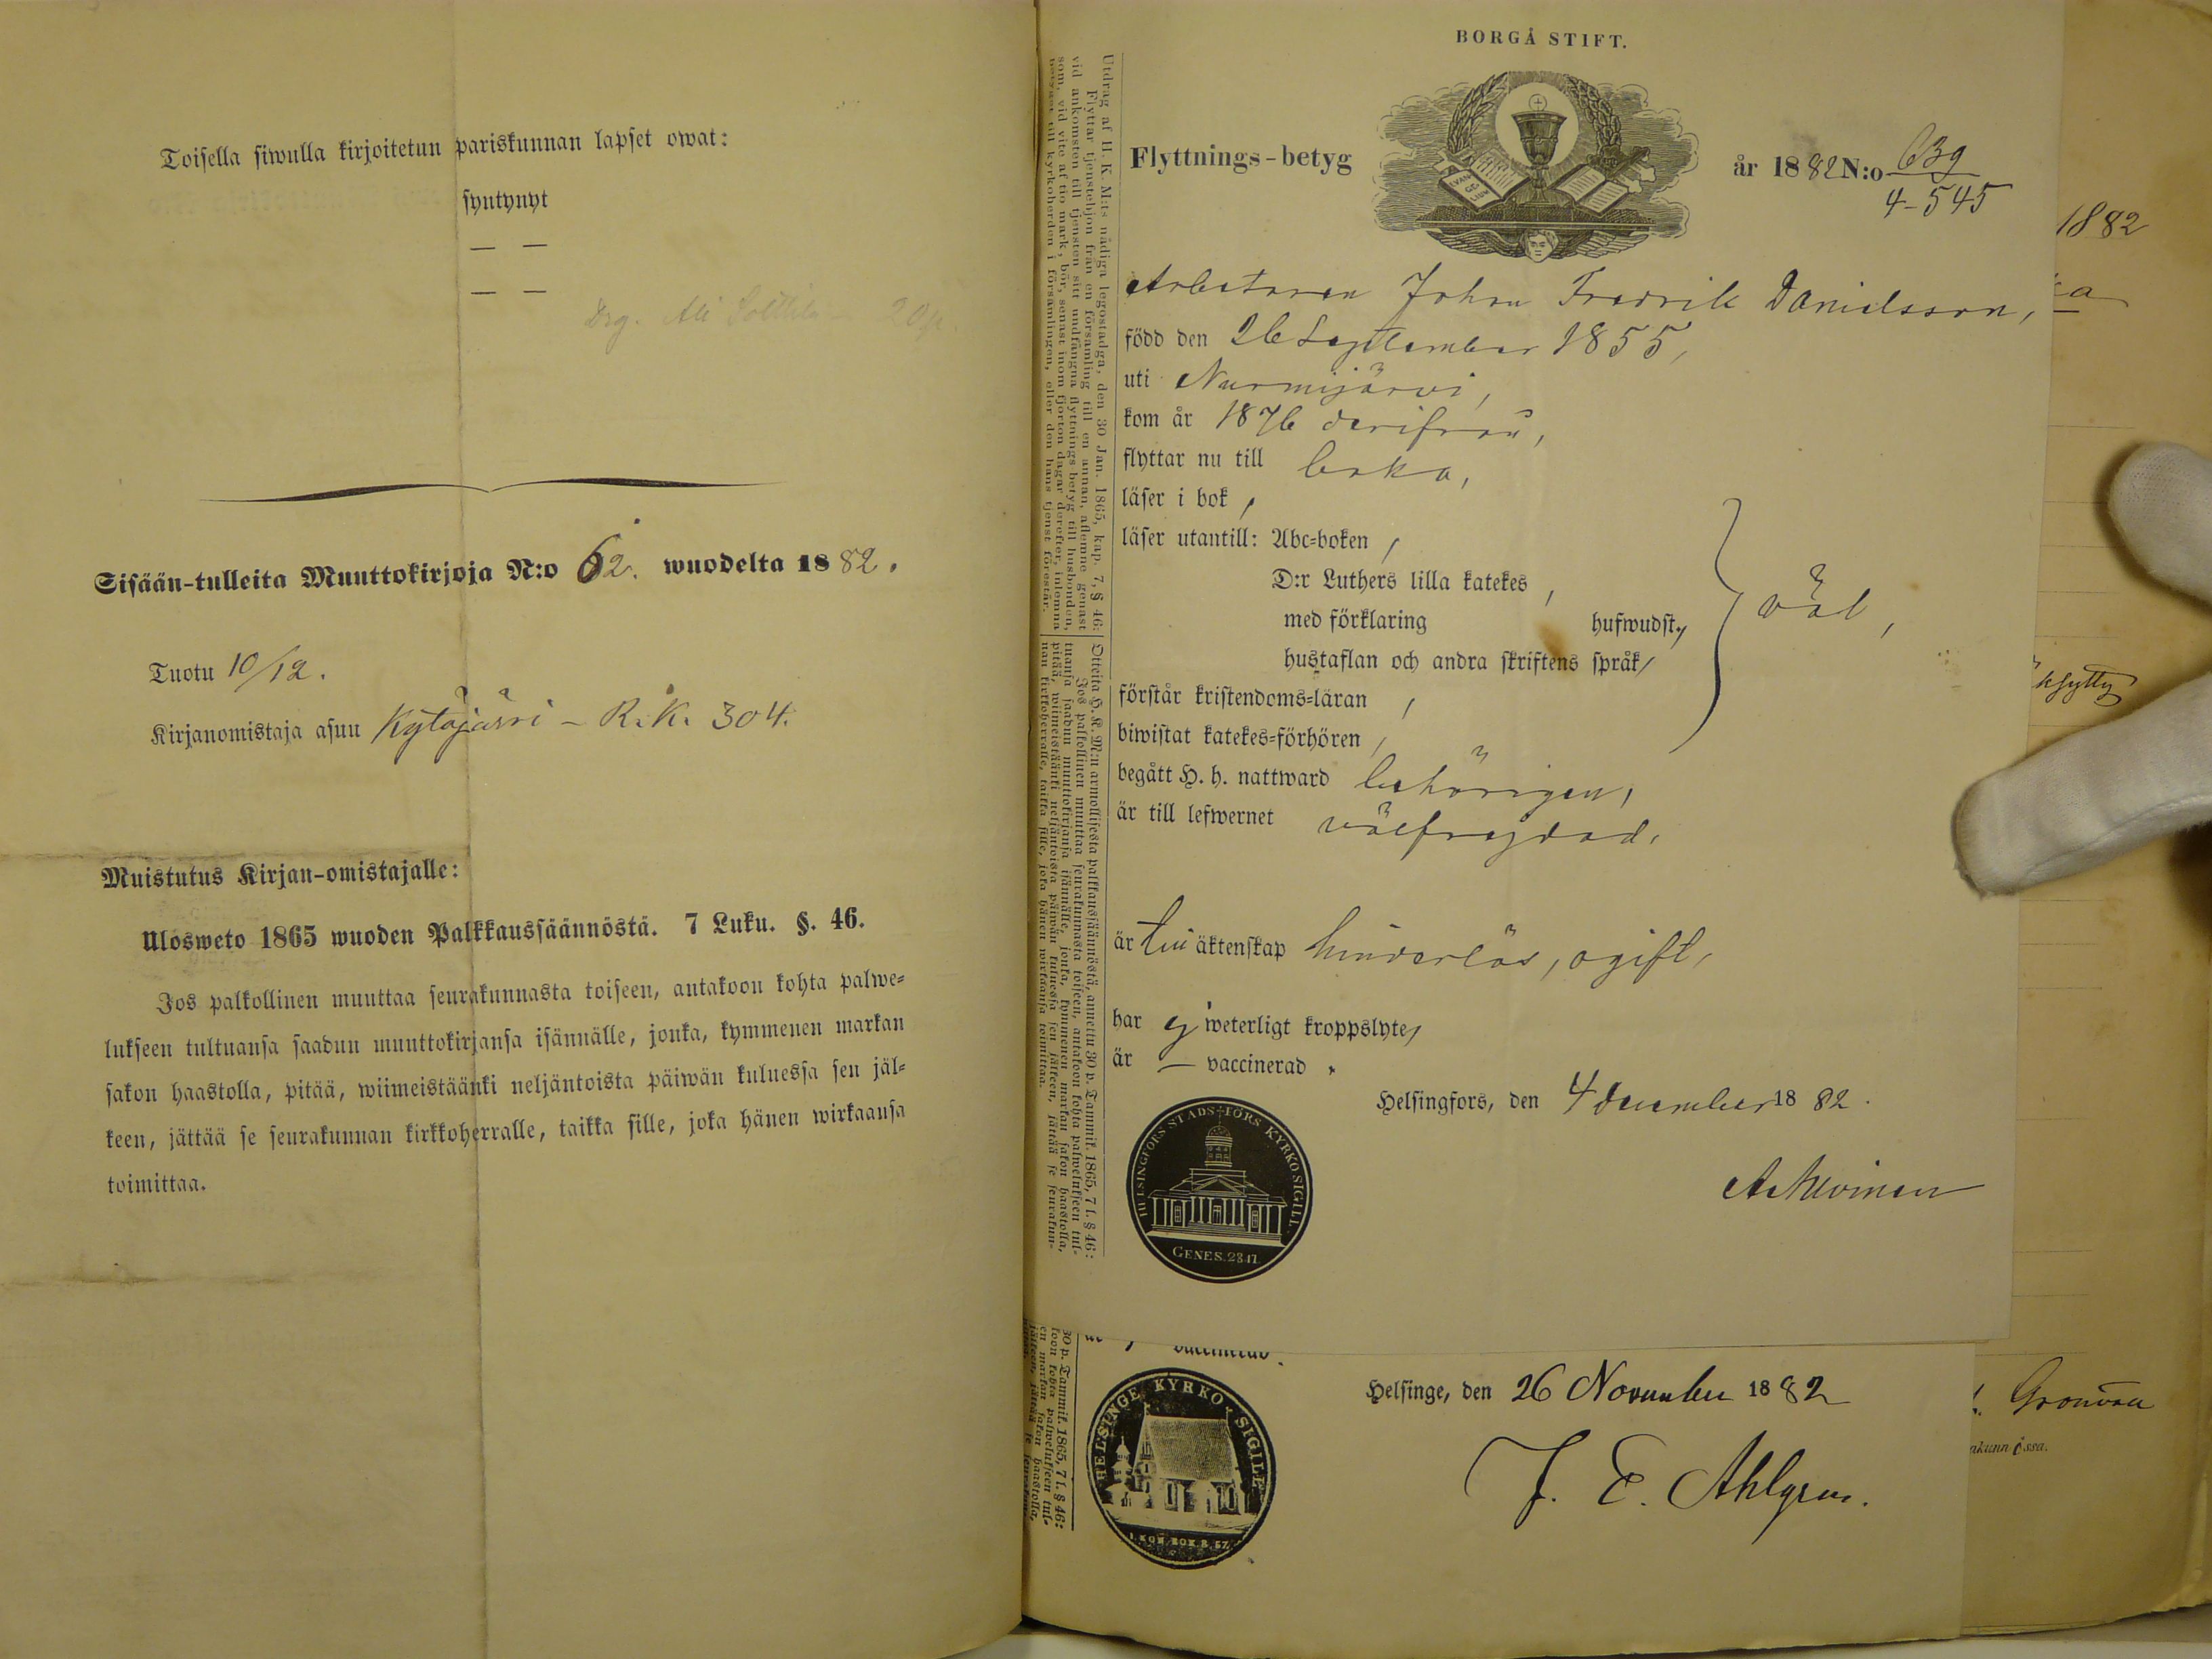 Toisella siwulla kirjoitetun pariskunnan lapset owat:
syntynyt
— —
— —
Sisään-tulleita Muuttokirjoja N:o 62. wuodelta 1882.
Tuotu 10/12.
Kirjanomistaja asuu Kytäjärvi – R.K. 304.
Muistutus Kirjan-omistajalle:
Ulosweto 1865 wuoden Palkkaussäännöstä. 7 Luku. §. 46.
Jos palkollinen muuttaa seurakunnasta toiseen, antakoon kohta palwe-
lukseen tultuansa saadun muuttokirjansa isännälle, jonka, kymmenen markan
sakon haastolla, pitää, wiimeistäänki neljäntoista päiwän kuluessa sen jäl-
keen, jättää se seurakunnan kirkkoherralle, taikka sille, joka hänen wirkaansa
toimittaa.
BORGÅ STIFT.
EVAN
GE-
LIUM
Flyttnings-betyg
år 1882 N:o 639
4-545
Arbetaren Johan Fredrik Danielsson,
född den 26 September 1855,
uti Nurmijärvi,
kom år 1876 derifrån,
flyttar nu till
läser i bok,
läser utantill: Abc-boken,
D:r Luthers lilla katekes,
med förklaring hufwudst.,
hustaflan och andra skriftens språk,
väl,
förstår kristendoms-läran,
biwistat katekes-förhören,
begått H. h. nattward behörigen,
är till lefwernet välfrejdad.
är till äktenskap hinderlös, ogift,
har ej weterligt kroppslyte,
är — vaccinerad.
Helsingfors, den 4 december 1882.
HELSINGFORS STADS FÖRS KYRKO SIGILL.
GENES. 28.17.
Utdrag af H. K. M:ts nådiga legostadga, den 30 Jan. 1865, kap. 7, § 46:
Flyttar tjenstehjon från en församling till en annan, aflemne genast
vid ankomsten till tjensten sitt undfångna flyttnings betyg till husbonden,
som, vid vite af tio mark, bör, senast inom fjorton dagar derefter, inlemna
betyget till kyrkoherden i församlingen, eller den hans tjenst förestår.
Otteita H. K. M:n armollisesta palkkaussäännöstä, annettu 30 p. Tammik. 1865, 7 l. § 46:
Jos palkollinen muuttaa seurakunnasta toiseen, antakoon kohta palwelukseen tul-
tuansa saadun muuttokirjansa isännälle, jonka, kymmenen markan sakon haastolla,
pitää, wiimeistäänki neljäntoista päiwän kuluessa sen jälkeen, jättää se seurakun-
nan kirkkoherralle, taikka sille, joka hänen wirkaansa toimittaa.
Helsinge, den 26 November 1882
J. E. Ahlgren.
HELSINGE KYRKO SIGILL
I. KON. BOK 8. 57.
30 p. Tammik. 1865, 7 l. § 46:
1882